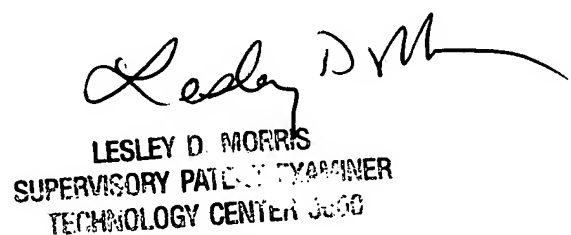 Lesley D. Morris
LESLEY D. MORRIS
SUPERVISORY PATENT EXAMINER
TECHNOLOGY CENTER